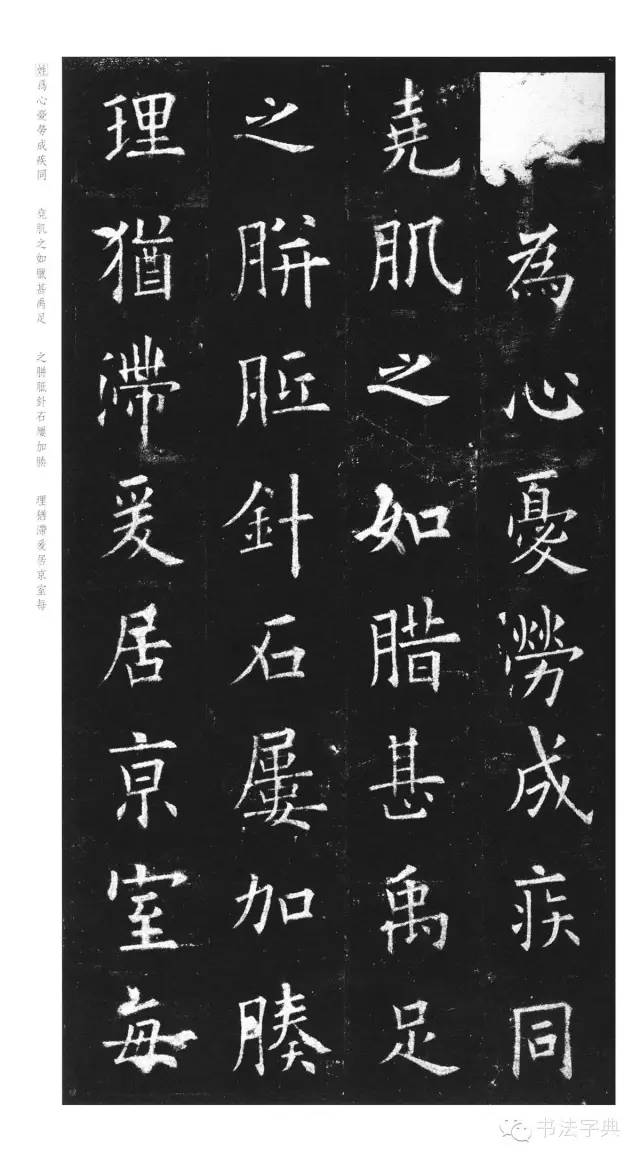 為心憂勞成疾同
堯肌之如腊甚禹足
之胼胝針石屢加腠
理猶滯爰居京室每
姓為心憂勞成疾同 堯肌之如臘甚禹足 之胼胝針石屢加腠 理猶滯爰居京室每
书法字典